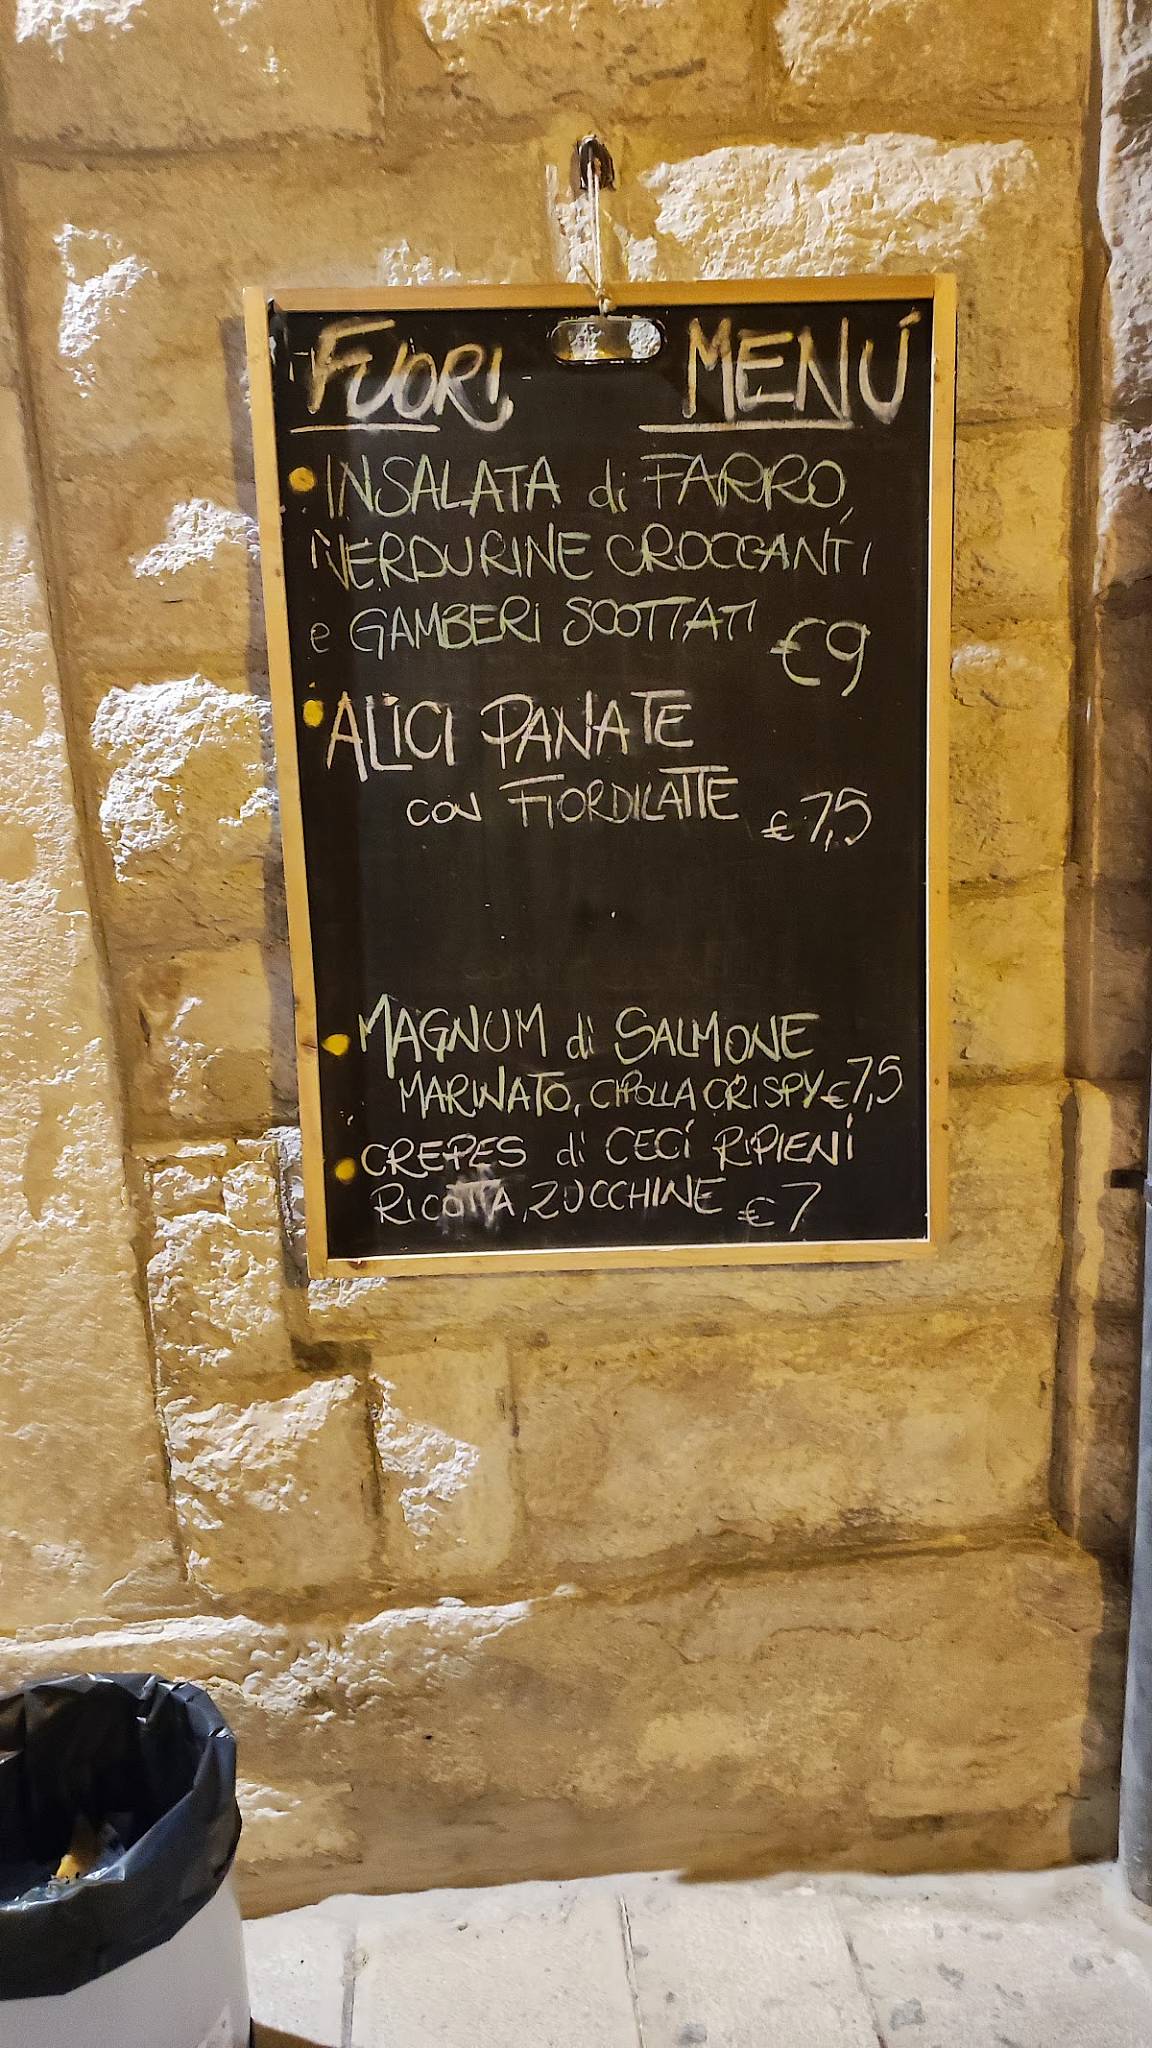 FUORI MENÚ
INSALATA di FARRO,
VERDURINE CROCCANTI
e GAMBERI SCOTTATI €9
ALICI PANATE
CON FIORDILATTE €7,5
MAGNUM di SALMONE
MARINATO, CIPOLLA CRISPY €7,5
CREPES di CECI RIPIENI
RICOTTA, ZUCCHINE €7